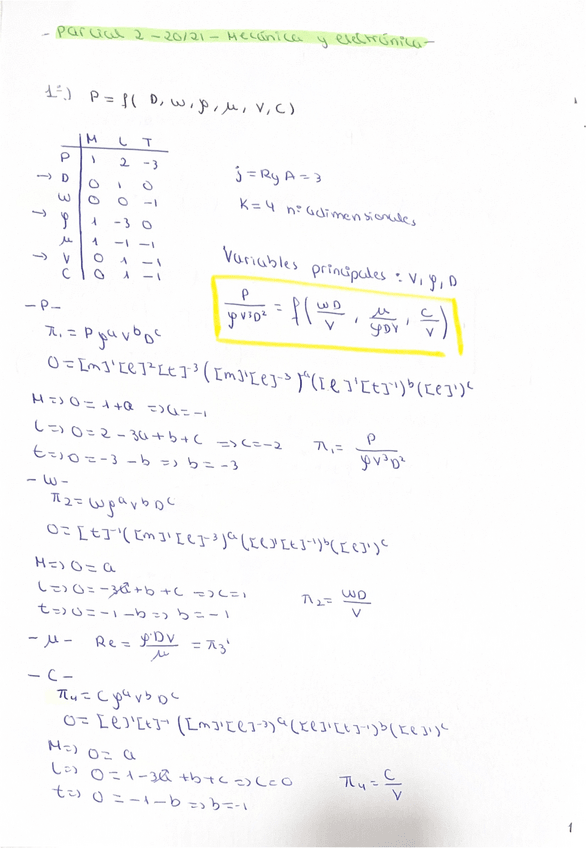 - Parcial 2 - 20/21 - Mecánica y electrónica -
1º) P = f( D, w, ρ, μ, V, C)
M L T
P 1 2 -3
→ D 0 1 0
w 0 0 -1
→ ρ 1 -3 0
μ 1 -1 -1
→ V 0 1 -1
C 0 1 -1
j = Rg A = 3
K = 4 nº adimensionales
Variables principales: V, ρ, D
P/ρV³D² = f( wD/V , μ/ρDV , C/V )
- P -
π₁ = P ρᵃ Vᵇ Dᶜ
0 = [m]¹[l]²[t]⁻³ ([m]¹[l]⁻³)ᵃ ([l]¹[t]⁻¹)ᵇ ([l]¹)ᶜ
M => 0 = 1 + a => a = -1
L => 0 = 2 - 3a + b + c => c = -2 π₁ = P/ρV³D²
t => 0 = -3 - b => b = -3
- w -
π₂ = w ρᵃ Vᵇ Dᶜ
0 = [t]⁻¹ ([m]¹[l]⁻³)ᵃ ([l]¹[t]⁻¹)ᵇ ([l]¹)ᶜ
M => 0 = a
L => 0 = -3a + b + c => c = 1
t => 0 = -1 - b => b = -1 π₂ = wD/V
- μ - Re = ρ·DV/μ = π₃'
- C -
π₄ = C ρᵃ Vᵇ Dᶜ
0 = [l]¹[t]⁻¹ ([m]¹[l]⁻³)ᵃ ([l]¹[t]⁻¹)ᵇ ([l]¹)ᶜ
M => 0 = a
L => 0 = 1 - 3a + b + c => c = 0 π₄ = C/V
t => 0 = -1 - b => b = -1
1